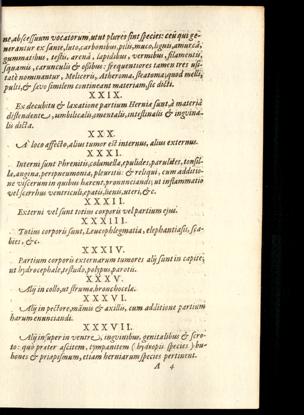 ne, abscessuum vocatorum, utut plures sint species: ceu qui ge-
nerantur ex sanie, luto, carbonibus, pilis, muco, lignis, amurca,
gummatibus, testis, arena, lapidibus, vermibus, filamentis,
squamis, carunculis & ossibus: frequentiores tamen tres usi-
tate nominantur, Meliceris, Atheroma, steatoma, quod melli,
pulti, & sevo similem contineant materiam, sic dicti.
XXIX.
Ex decubitu & laxatione partium Herniæ sunt, à materia
distendente, umbilicalis, omentalis, intestinalis & inguina-
lis dicta.
XXX.
A loco affecto, alius tumor est internus, alius externus.
XXXI.
Interni sunt Phrenitis, columella, epulides, parulides, tonsil-
læ, angina, peripneumonia, pleuritis: & reliqui, cum additio-
ne viscerum in quibus hærent, pronunciandi; ut inflammatio
vel scirrhus ventriculi, epatis, lienis, uteri, &c.
XXXII.
Externi vel sunt totius corporis vel partium ejus.
XXXIII.
Totius corporis sunt, Leucophlegmatia, elephantiasis, sca-
bies, &c.
XXXIV.
Partium corporis externarum tumores alij sunt in capite,
ut hydrocephale, testudo, polypus, parotis.
XXXV.
Alij in collo, ut struma, bronchocela.
XXXVI.
Alij in pectore, mamis & axillis, cum additione partium
harum enunciandi.
XXXVII.
Alij insuper in ventre, inguinibus, genitalibus & scro-
to: quo præter ascitem, tympanitem (hydropis species) bu-
bones & priapismum, etiam herniarum species pertinent.
A 4